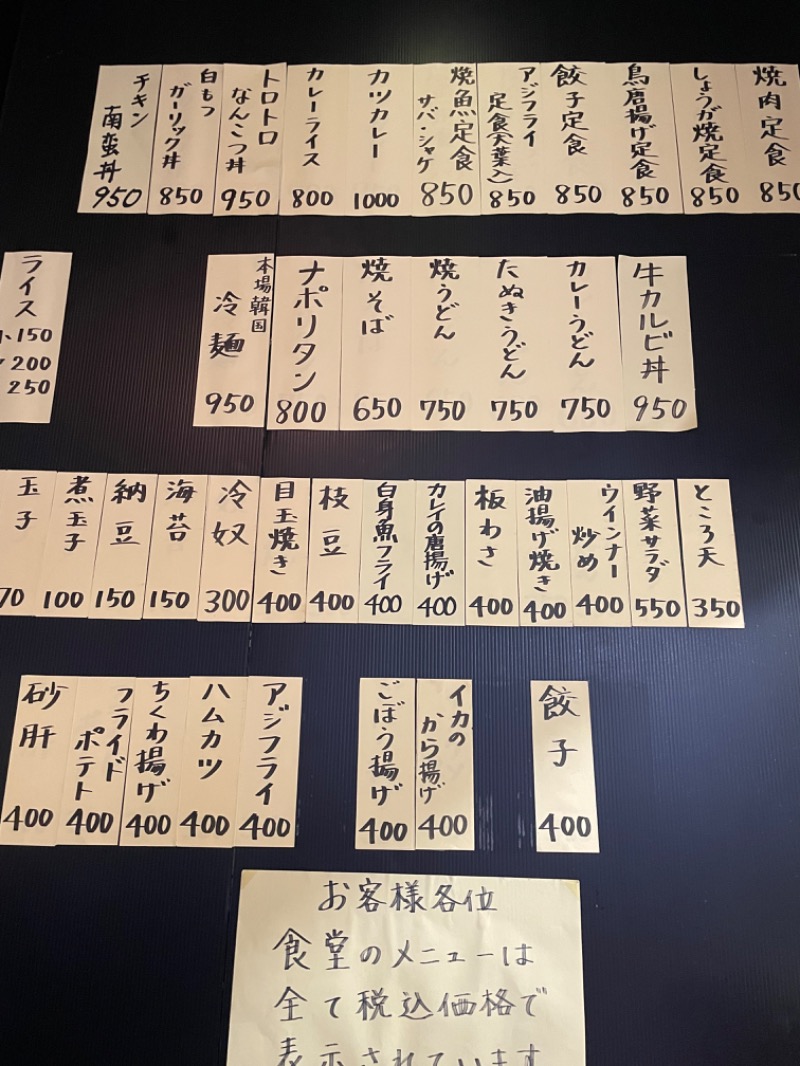 焼肉定食
850
しょうが焼定食
850
鳥唐揚げ定食
850
餃子定食
850
アジフライ
定食(大葉入)
850
焼魚定食
サバ・シャケ
850
カツカレー
1000
カレーライス
800
トロトロ
なんこつ丼
950
白もつ
ガーリック丼
850
チキン
南蛮丼
950
牛カルビ丼
950
カレーうどん
750
たぬきうどん
750
焼うどん
750
焼そば
650
ナポリタン
800
本場韓国
冷麺
950
ライス
小150
200
250
ところ天
350
野菜サラダ
550
ウインナー
炒め
400
油揚げ焼き
400
板わさ
400
カレイの唐揚げ
400
白身魚フライ
400
枝豆
400
目玉焼き
400
冷奴
300
海苔
150
納豆
150
煮玉子
100
玉子
70
餃子
400
イカの
から揚げ
400
ごぼう揚げ
400
アジフライ
400
ハムカツ
400
ちくわ揚げ
400
フライド
ポテト
400
砂肝
400
お客様各位
食堂のメニューは
全て税込価格で
表示されています